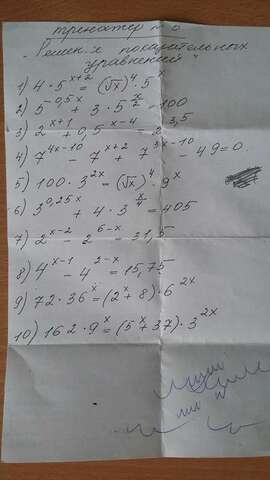 тренажер № 0
"Решение показательных
уравнений"
1) 4·5^{x+2} = (√x)^4·5^x
2) 5^{0,5x} + 3·5^{x/2} = 100
3) 2^{x+1} + 0,5^{x-4} = 2^{3,5}
4) 7^{4x-10} - 7^{x+2} + 7^{3x-10} - 49 = 0.
5) 100·3^{2x} = (√x)^4·9^x
6) 3^{0,25x} + 4·3^{x/4} = 405
7) 2^{x-2} - 2^{6-x} = 31,5
8) 4^{x-1} - 4^{2-x} = 15,75
9) 72·36^x = (2^x + 8)·6^{2x}
10) 162·9^x = (5^x + 37)·3^{2x}